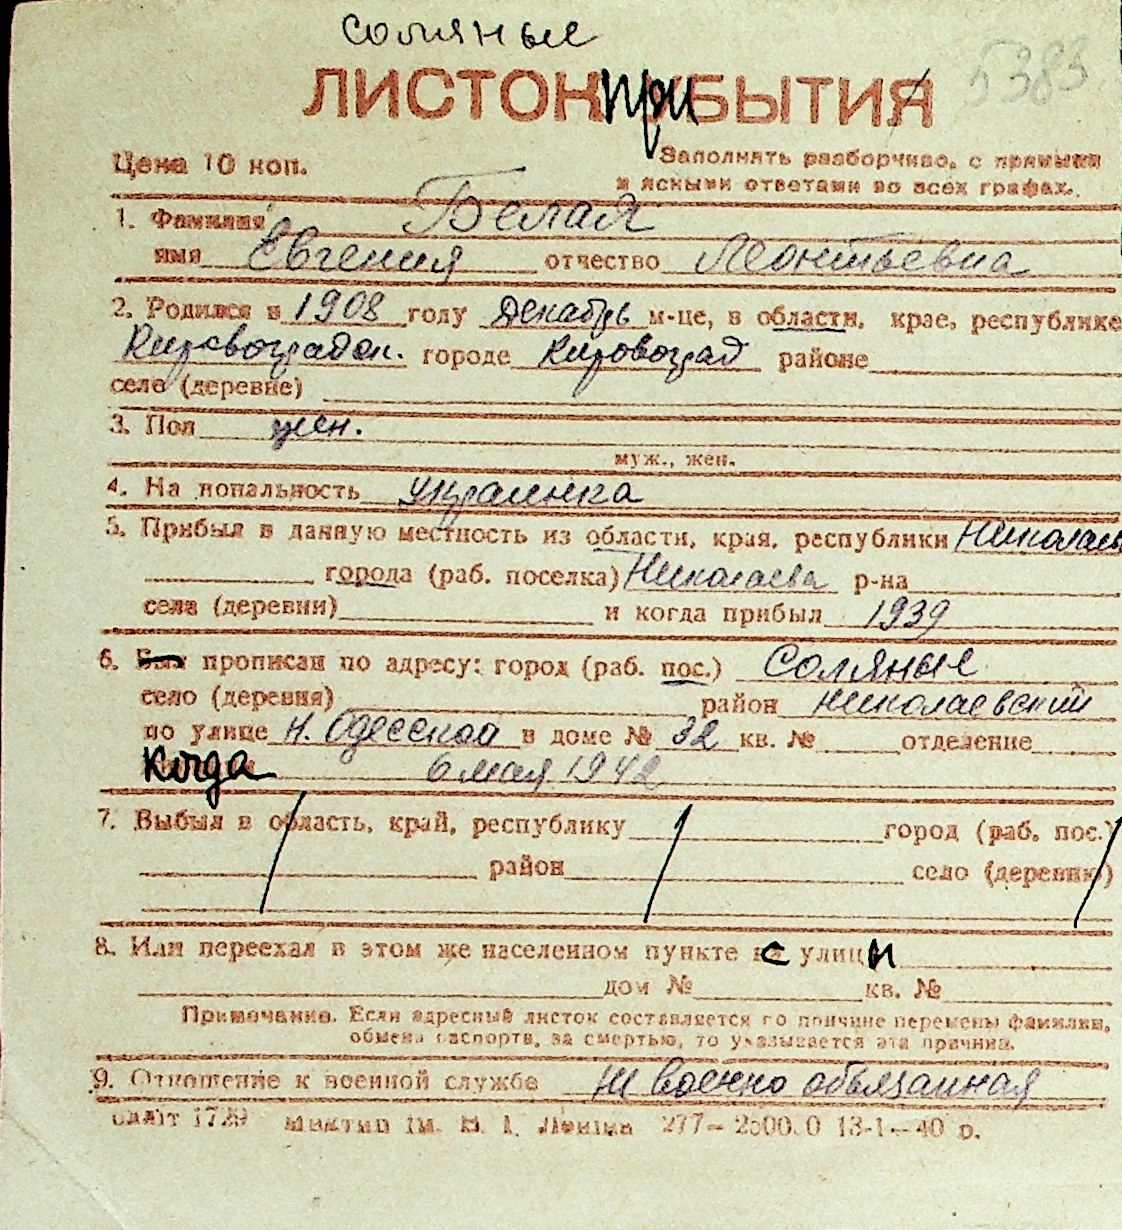 Соляные
5383
ЛИСТОК приБЫТИЯ
Цена 10 коп.
Заполнять разборчиво, с прямыми
и ясными ответами во всех графах.
1. Фамилия Белая
имя Евгения отчество Леонтьевна
2. Родился в 1908 году Декабрь м-це, в области, крае, республике
Кировоградск. городе Кировоград районе
село (деревне)
3. Пол жен.
муж., жен.
4. На иональность украинка
5. Прибыл в данную местность из области, края, республики Николаев
города (раб. поселка) Николаева р-на
села (деревни) и когда прибыл 1939
6. Был прописан по адресу: город (раб. пос.) Соляные
село (деревня) район Николаевский
по улице Н. Одесской в доме № 32 кв. № отделение
Когда 6 мая 1942
7. Выбыл в область, край, республику город (раб. пос.)
район село (деревню)
8. Или переехал в этом же населенном пункте с улици
дом № кв. №
Примечание. Если адресный листок составляется по причине перемены фамилии,
обмена паспорта, за смертью, то указывается эта причина.
9. Отношение к военной службе военно обязанная
1729 ім. В. І. Леніна 277— 13-1—40 р.